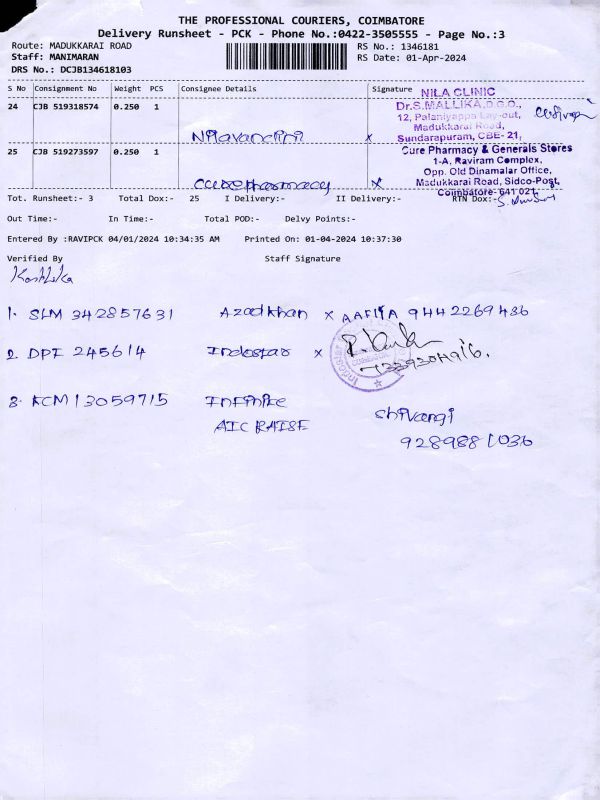 THE PROFESSIONAL COURIERS, COIMBATORE
Delivery Runsheet - PCK - Phone No.:0422-3505555 - Page No.:3
Route: MADUKKARAI ROAD RS No.: 1346181
Staff: MANIMARAN RS Date: 01-Apr-2024
DRS No.: DCJB134618103
S No Consignment No Weight PCS Consignee Details Signature
24 CJB 519318574 0.250 1
NILA CLINIC
Dr.S.MALLIKA,D.G.O.,
12, Palaniyappa Lay-out,
Madukkarai Road,
Sundarapuram, CBE- 21,
x
25 CJB 519273597 0.250 1
Cure Pharmacy & Generals Stores
1-A, Raviram Complex,
Opp. Old Dinamalar Office,
Madukkarai Road, Sidco-Post,
Coimbatore- 641 021.
Cure Pharmacy x
Tot. Runsheet:- 3 Total Dox:- 25 I Delivery:- II Delivery:- RTN Dox:-
Out Time:- In Time:- Total POD:- Delvy Points:-
Entered By :RAVIPCK 04/01/2024 10:34:35 AM Printed On: 01-04-2024 10:37:30
Verified By Staff Signature
1. SLM 342857631 Azad khan x AAFIYA 9442269436
2. DPI 245614 Indostar x
3. KCM 13059715 Infinite Shivangi
AIC RAISE 9289881036